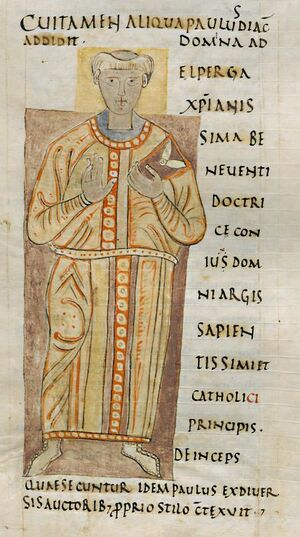 CUI TAMEN ALIQUA PAULUS DIAC
ADDIDIT. DOMINA AD
ELPERGA
XPIANIS
SIMA BE
NEUENTI
DOCTRI
CE CON
IUS DOM
NI ARGIS
SAPIEN
TISSIMI ET
CATHOLICI
PRINCIPIS.
DEINCEPS
QUAE SECUNTUR IDEM PAULUS EX DIUER
SIS AUCTORIB; PPRIO STILO CTEXUIT